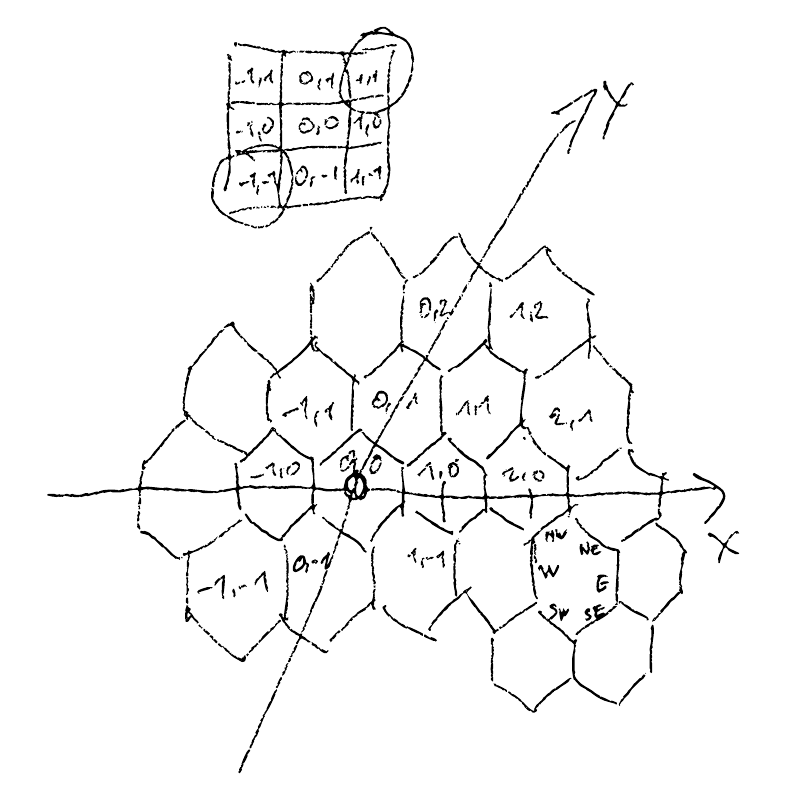 -1,1 0,1 1,1
-1,0 0,0 1,0
-1,-1 0,-1 1,-1
Y
0,2 1,2
-1,1 0,1 1,1 2,1
-1,0 0,0 1,0 2,0
X
-1,-1 0,-1 1,-1
NW NE
W E
SW SE